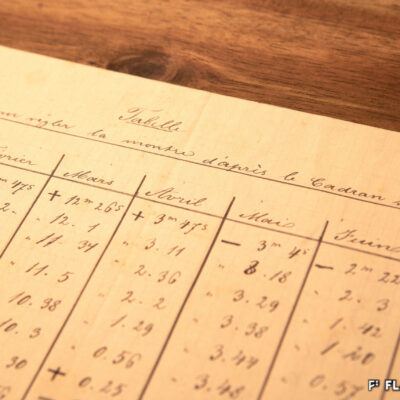 Tabelle
régler la montre d'après le Cadran
Mars Avril Mais Juin
47s + 12m 26s + 3m 47s − 3m 4s − 2m 22
" 12. 1 " 3. 11 " 8. 18 " 2. 3
" 11. 34 " 2. 36 " 3. 29 " 1. 42
" 11. 5 " 2. 2 " 3. 38 " 1. 20
" 10. 38 " 1. 29 " 3. 44 " 0. 57
" 10. 3 " 0. 56 " 3. 48
30 + 0. 25